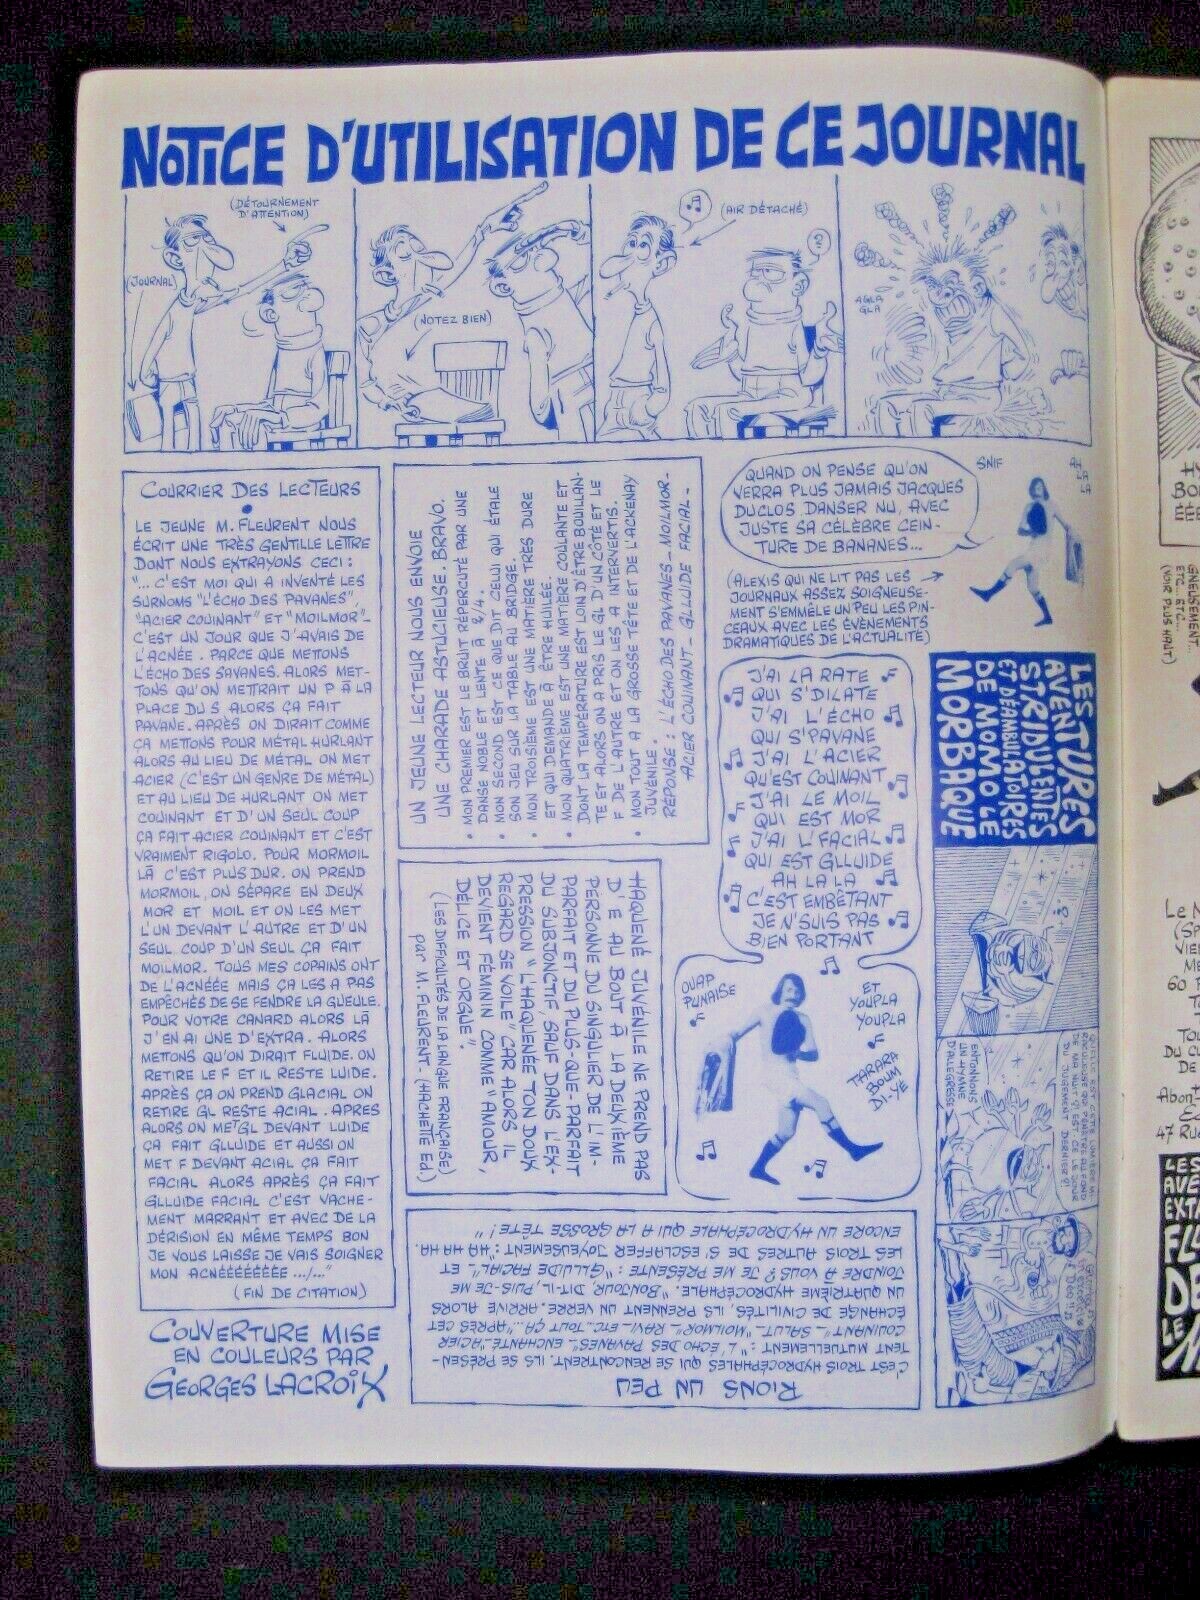 NOTICE D'UTILISATION DE CE JOURNAL
(DÉTOURNEMENT
D'ATTENTION)
(JOURNAL)
(NOTEZ BIEN)
(AIR DÉTACHÉ)
?
AGLA
GLA
COURRIER DES LECTEURS
LE JEUNE M. FLEURENT NOUS
ÉCRIT UNE TRÈS GENTILLE LETTRE
DONT NOUS EXTRAYONS CECI :
"... C'EST MOI QUI A INVENTÉ LES
SURNOMS "L'ÉCHO DES PAVANES"
"ACIER COUINANT" ET "MOILMOR"_
C'EST UN JOUR QUE J'AVAIS DE
L'ACNÉE . PARCE QUE METTONS
L'ÉCHO DES SAVANES. ALORS MET-
TONS QU'ON METTRAIT UN P À LA
PLACE DU S ALORS ÇA FAIT
PAVANE. APRÈS ON DIRAIT COMME
ÇA METTONS POUR MÉTAL HURLANT
ALORS AU LIEU DE MÉTAL ON MET
ACIER (C'EST UN GENRE DE MÉTAL)
ET AU LIEU DE HURLANT ON MET
COUINANT ET D'UN SEUL COUP
ÇA FAIT ACIER COUINANT ET C'EST
VRAIMENT RIGOLO. POUR MORMOIL
LÀ C'EST PLUS DUR. ON PREND
MORMOIL, ON SÉPARE EN DEUX
MOR ET MOIL ET ON LES MET
L'UN DEVANT L'AUTRE ET D'UN
SEUL COUP D'UN SEUL ÇA FAIT
MOILMOR. TOUS MES COPAINS ONT
DE L'ACNÉÉE MAIS ÇA LES A PAS
EMPÊCHÉS DE SE FENDRE LA GUEULE.
POUR VOTRE CANARD ALORS LÀ
J'EN AI UNE D'EXTRA. ALORS
METTONS QU'ON DIRAIT FLUIDE. ON
RETIRE LE F ET IL RESTE LUIDE.
APRÈS ÇA ON PREND GLACIAL ON
RETIRE GL RESTE ACIAL. APRES
ALORS ON MET GL DEVANT LUIDE
ÇA FAIT GLLUIDE ET AUSSI ON
MET F DEVANT ACIAL ÇA FAIT
FACIAL ALORS APRÈS ÇA FAIT
GLLUIDE FACIAL C'EST VACHE-
MENT MARRANT ET AVEC DE LA
DÉRISION EN MÊME TEMPS BON
JE VOUS LAISSE JE VAIS SOIGNER
MON ACNÉÉÉÉÉÉÉE .../..."
(FIN DE CITATION)
COUVERTURE MISE
EN COULEURS PAR
GEORGES LACROIX
UN JEUNE LECTEUR NOUS ENVOIE
UNE CHARADE ASTUCIEUSE. BRAVO.
• MON PREMIER EST LE BRUIT RÉPERCUTÉ PAR UNE
DANSE NOBLE ET LENTE À 2/4.
• MON SECOND EST CE QUE DIT CELUI QUI ÉTALE
SON JEU SUR LA TABLE AU BRIDGE.
• MON TROISIÈME EST UNE MATIÈRE TRÈS DURE
ET QUI DEMANDE À ÊTRE HUILÉE.
• MON QUATRIÈME EST UNE MATIÈRE COULANTE ET
DONT LA TEMPÉRATURE EST LOIN D'ÊTRE BOUILLAN-
TE ET ALORS ON A PRIS LE GL D'UN CÔTÉ ET LE
F DE L'AUTRE ET ON LES A INTERVERTIS.
• MON TOUT A LA GROSSE TÊTE ET DE L'ACKENAY
JUVÉNILE.
RÉPONSE : L'ÉCHO DES PAVANES _ MOILMOR_
ACIER COUINANT _ GLLUIDE FACIAL _
HAQUENÉ JUVÉNILE NE PREND PAS
D' E AU BOUT À LA DEUXIÈME
PERSONNE DU SINGULIER DE L'IM-
PARFAIT ET DU PLUS-QUE-PARFAIT
DU SUBJONCTIF, SAUF DANS L'EX-
PRESSION "L'HAQUENÉE TON DOUX
REGARD SE VOILE" CAR ALORS IL
DEVIENT FÉMININ COMME "AMOUR,
DÉLICE ET ORGUE".
(LES DIFFICULTÉS DE LA LANGUE FRANÇAISE)
par M. FLEURENT. (HACHETTE ED.)
RIONS UN PEU
C'EST TROIS HYDROCÉPHALES QUI SE RENCONTRENT. ILS SE PRÉSEN-
TENT MUTUELLEMENT : "L'ECHO DES PAVANES_ENCHANTÉ_ACIER
COUINANT _ SALUT_ MOILMOR_ RAVI_ETC. TOUT ÇA..." APRÈS CET
ÉCHANGE DE CIVILITÉS, ILS PRENNENT UN VERRE. ARRIVE ALORS
UN QUATRIÈME HYDROCÉPHALE. "BONJOUR, DIT-IL, PUIS-JE ME
JOINDRE À VOUS ? JE ME PRÉSENTE : "GLLUIDE FACIAL" ET
LES TROIS AUTRES DE S'ESCLAFFER JOYEUSEMENT : "HA HA HA.
ENCORE UN HYDROCÉPHALE QUI A LA GROSSE TÊTE ! "
QUAND ON PENSE QU'ON
VERRA PLUS JAMAIS JACQUES
DUCLOS DANSER NU, AVEC
JUSTE SA CÉLÈBRE CEIN-
TURE DE BANANES...
SNIF
(ALEXIS QUI NE LIT PAS LES
JOURNAUX ASSEZ SOIGNEUSE-
MENT S'EMMÊLE UN PEU LES PIN-
CEAUX AVEC LES ÉVÈNEMENTS
DRAMATIQUES DE L'ACTUALITÉ)
J'AI LA RATE
QUI S'DILATE
J'AI L'ÉCHO
QUI S'PAVANE
J'AI L'ACIER
QU'EST COUINANT
J'AI LE MOIL
QUI EST MOR
J'AI L'FACIAL
QUI EST GLLUIDE
AH LA LA
C'EST EMBÊTANT
JE N'SUIS PAS
BIEN PORTANT
OUAP
PUNAISE
ET
YOUPLA
YOUPLA
TARARA
BOUM
DI-YÉ
LES
AVENTURES
STRIDULENTES
ET DÉAMBULATOIRES
DE MOMO LE
MORBAQUE
ENTONNONS
UN HYMNE
D'ALÉGRESSE
DU JUGEMENT DERNIER ?!
(VOIR PLUS HAUT)
ETC... ETC...
60
47 RU
LES